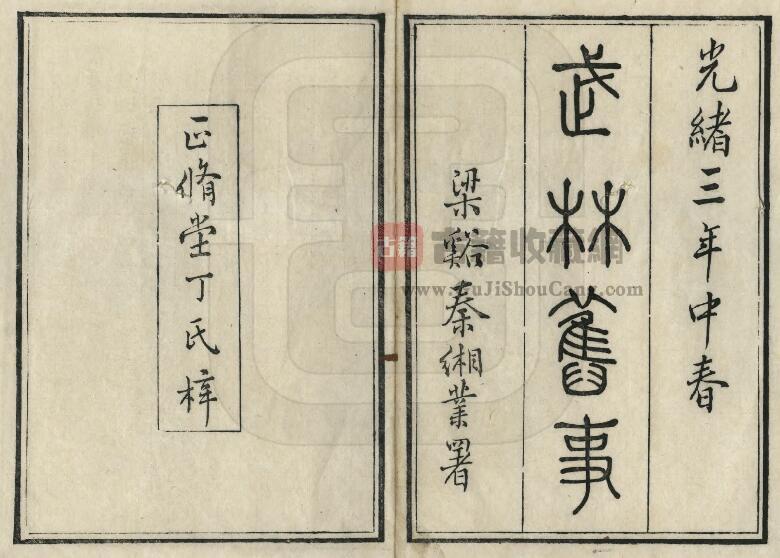 光緒三年中春
武林舊事
梁谿秦緗業署
正脩堂丁氏梓
古籍
古籍收藏網
www.GuJiShouCang.com